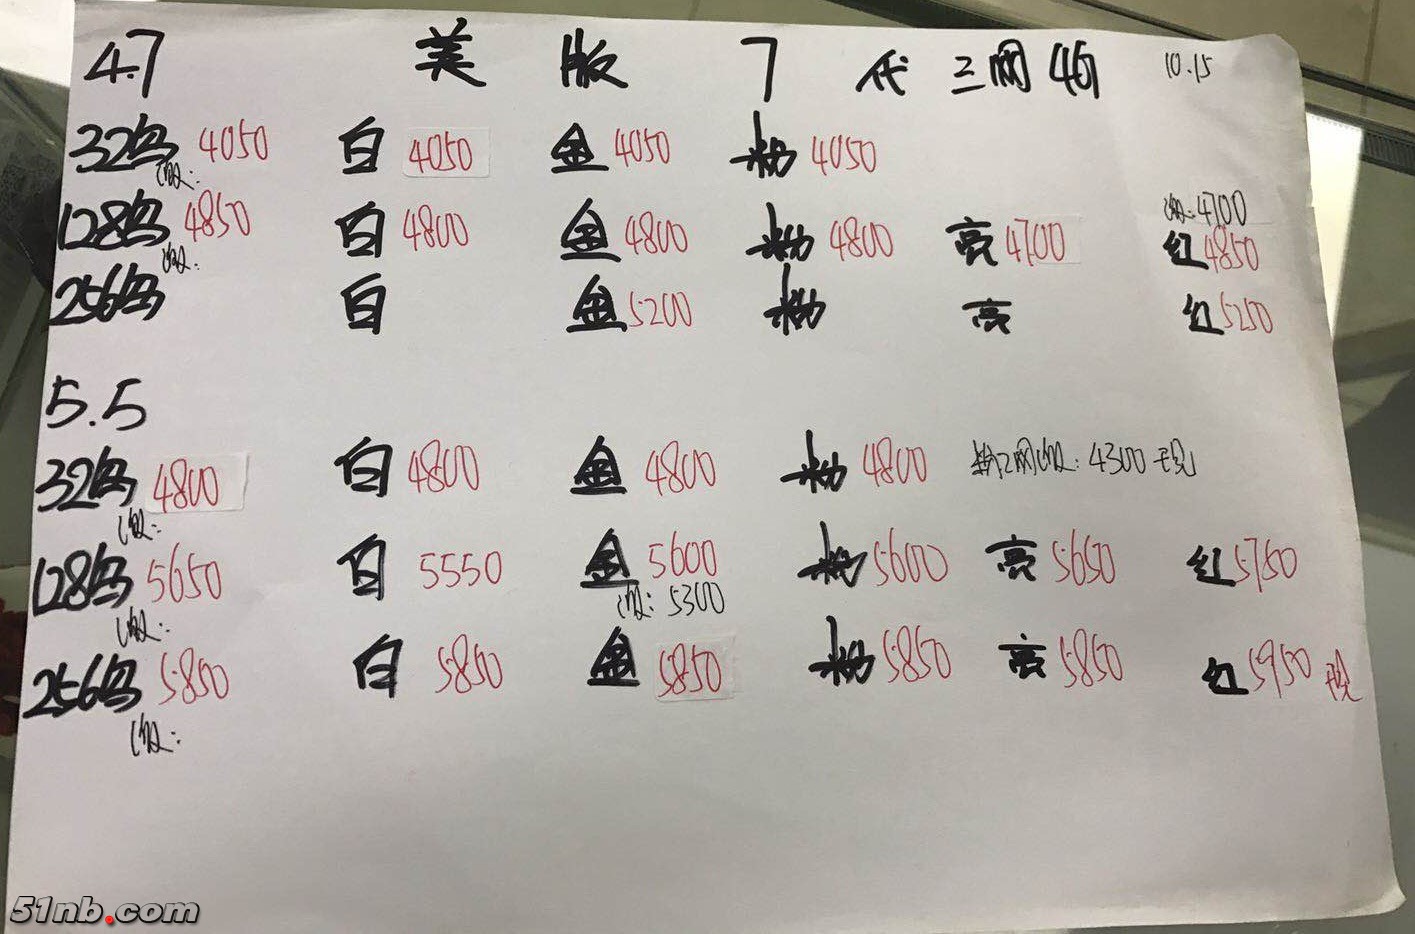 4.7 美 版 7 代 三网 4G 10.15
32 4050 白 4050 金 4050 粉 4050
128 4850 白 4800 金 4800 粉 4800 亮 4700 红 4850
4700
256 白 金 5200 粉 亮 红 5250
5.5
32 4800 白 4800 金 4800 粉 4800 4300 现
128 5650 白 5550 金 5600 粉 5600 亮 5650 红 5750
5300
256 5850 白 5850 金 5850 粉 5850 亮 5850 红 5950 现
51nb.com